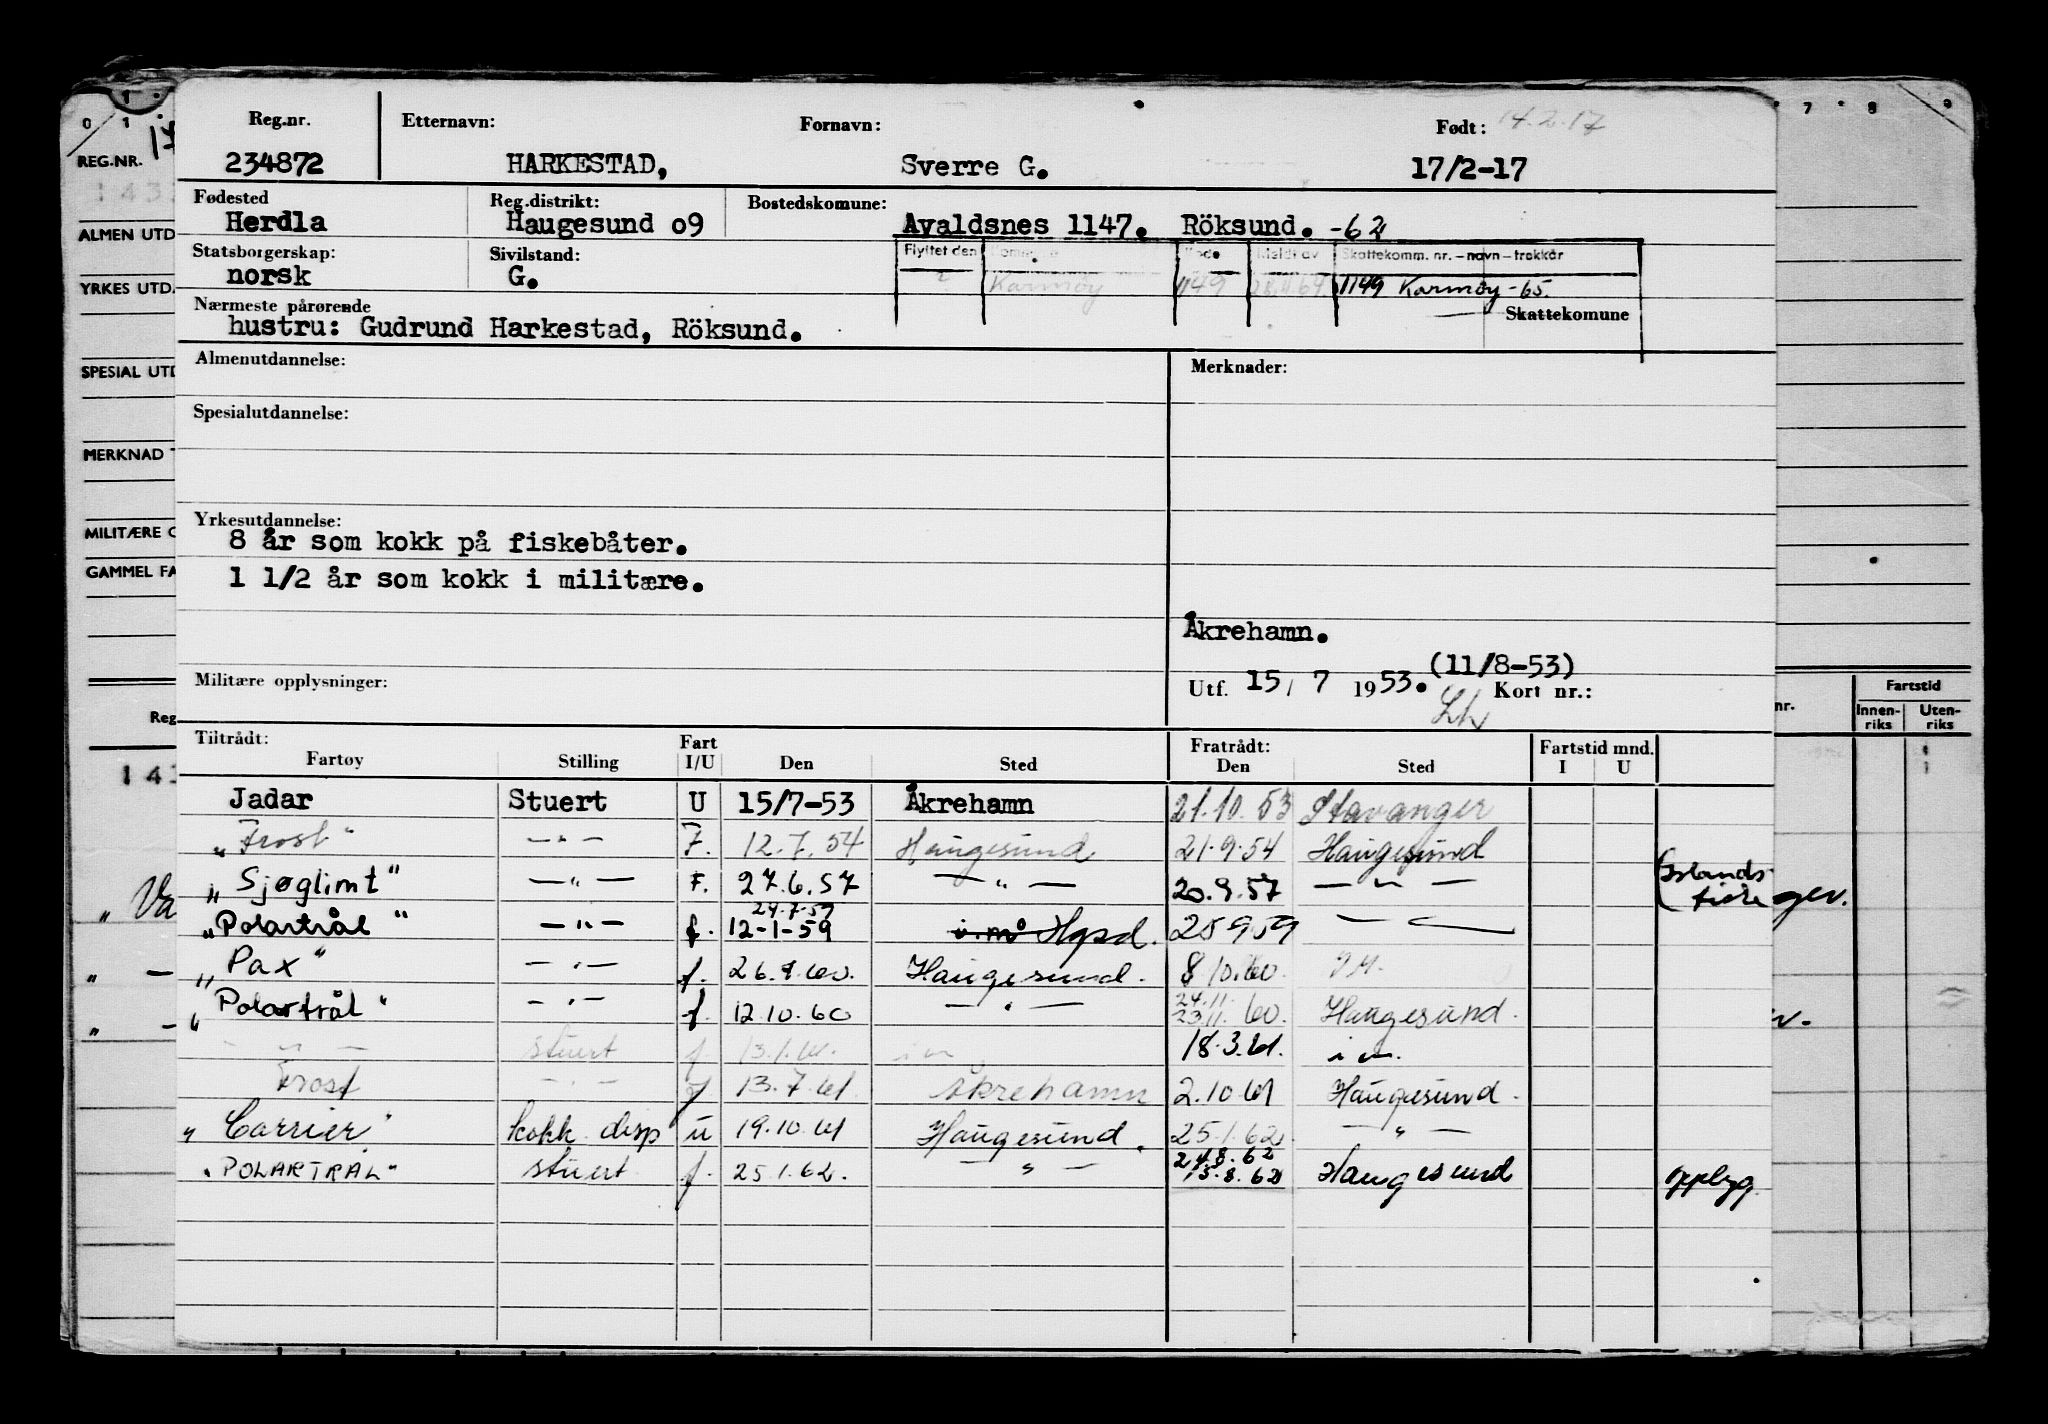 Reg.nr. Etternavn: Fornavn: Født: 14.2.17
234872 HARKESTAD, Sverre G. 17/2-17
Fødested Reg.distrikt: Bostedskomune:
Herdla Haugesund o9 Avaldsnes 1147. Röksund. -62
Statsborgerskap: Sivilstand: Flyttet den Kode Meldt av Skattekomm. nr. – navn – trekkår
norsk G. ? Karmøy 1149 1149 Karmøy -65.
Nærmeste pårørende Skattekomune
hustru: Gudrund Harkestad, Röksund.
Almenutdannelse: Merknader:
Spesialutdannelse:
Yrkesutdannelse:
8 år som kokk på fiskebåter.
1 1/2 år som kokk i militære.
Åkrehamn.
(11/8-53)
Militære opplysninger: Utf. 15/ 7 1953. Kort nr.:
Tiltrådt: Fart Fratrådt: Fartstid mnd.
Fartøy Stilling I/U Den Sted Den Sted I U
Jadar Stuert U 15/7-53 Åkrehamn 21.10.53 Stavanger
"Frost" — " — F. 12.7.54 Haugesund 21.9.54 Haugesund
"Sjøglimt" — " — F. 27.6.57 — " — 20.9.57 — " — Islands-
fiske
24.7.59
"Polartrål" — " — f. 12-1-59 i.m. Hgsd. 25959 — " —
"Pax" — " — f. 26.9.60. Haugesund. 8.10.60
24.11.
"Polartrål" — " — f. 12.10.60 — " — 23.11.60. Haugesund.
— " — stuert f. 13.1.61. i m 18.3.61. i m.
Frost — " — f 13.7.61 Åkrehamn 2.10.61 Haugesund.
"Carrier" kokk disp u 19.10.61 Haugesund. 25.1.62. — " —
24.8.62
"POLARTRÅL" stuert f. 25.1.62. — " — 15.8.62 Haugesund oppbyg
0 1
REG.NR.
ALMEN UTD
YRKES UTD.
SPESIAL UTD
MERKNAD
MILITÆRE
GAMMEL FA
Reg
7 8 9
nr. Fartstid
Innen-
riks Uten-
riks